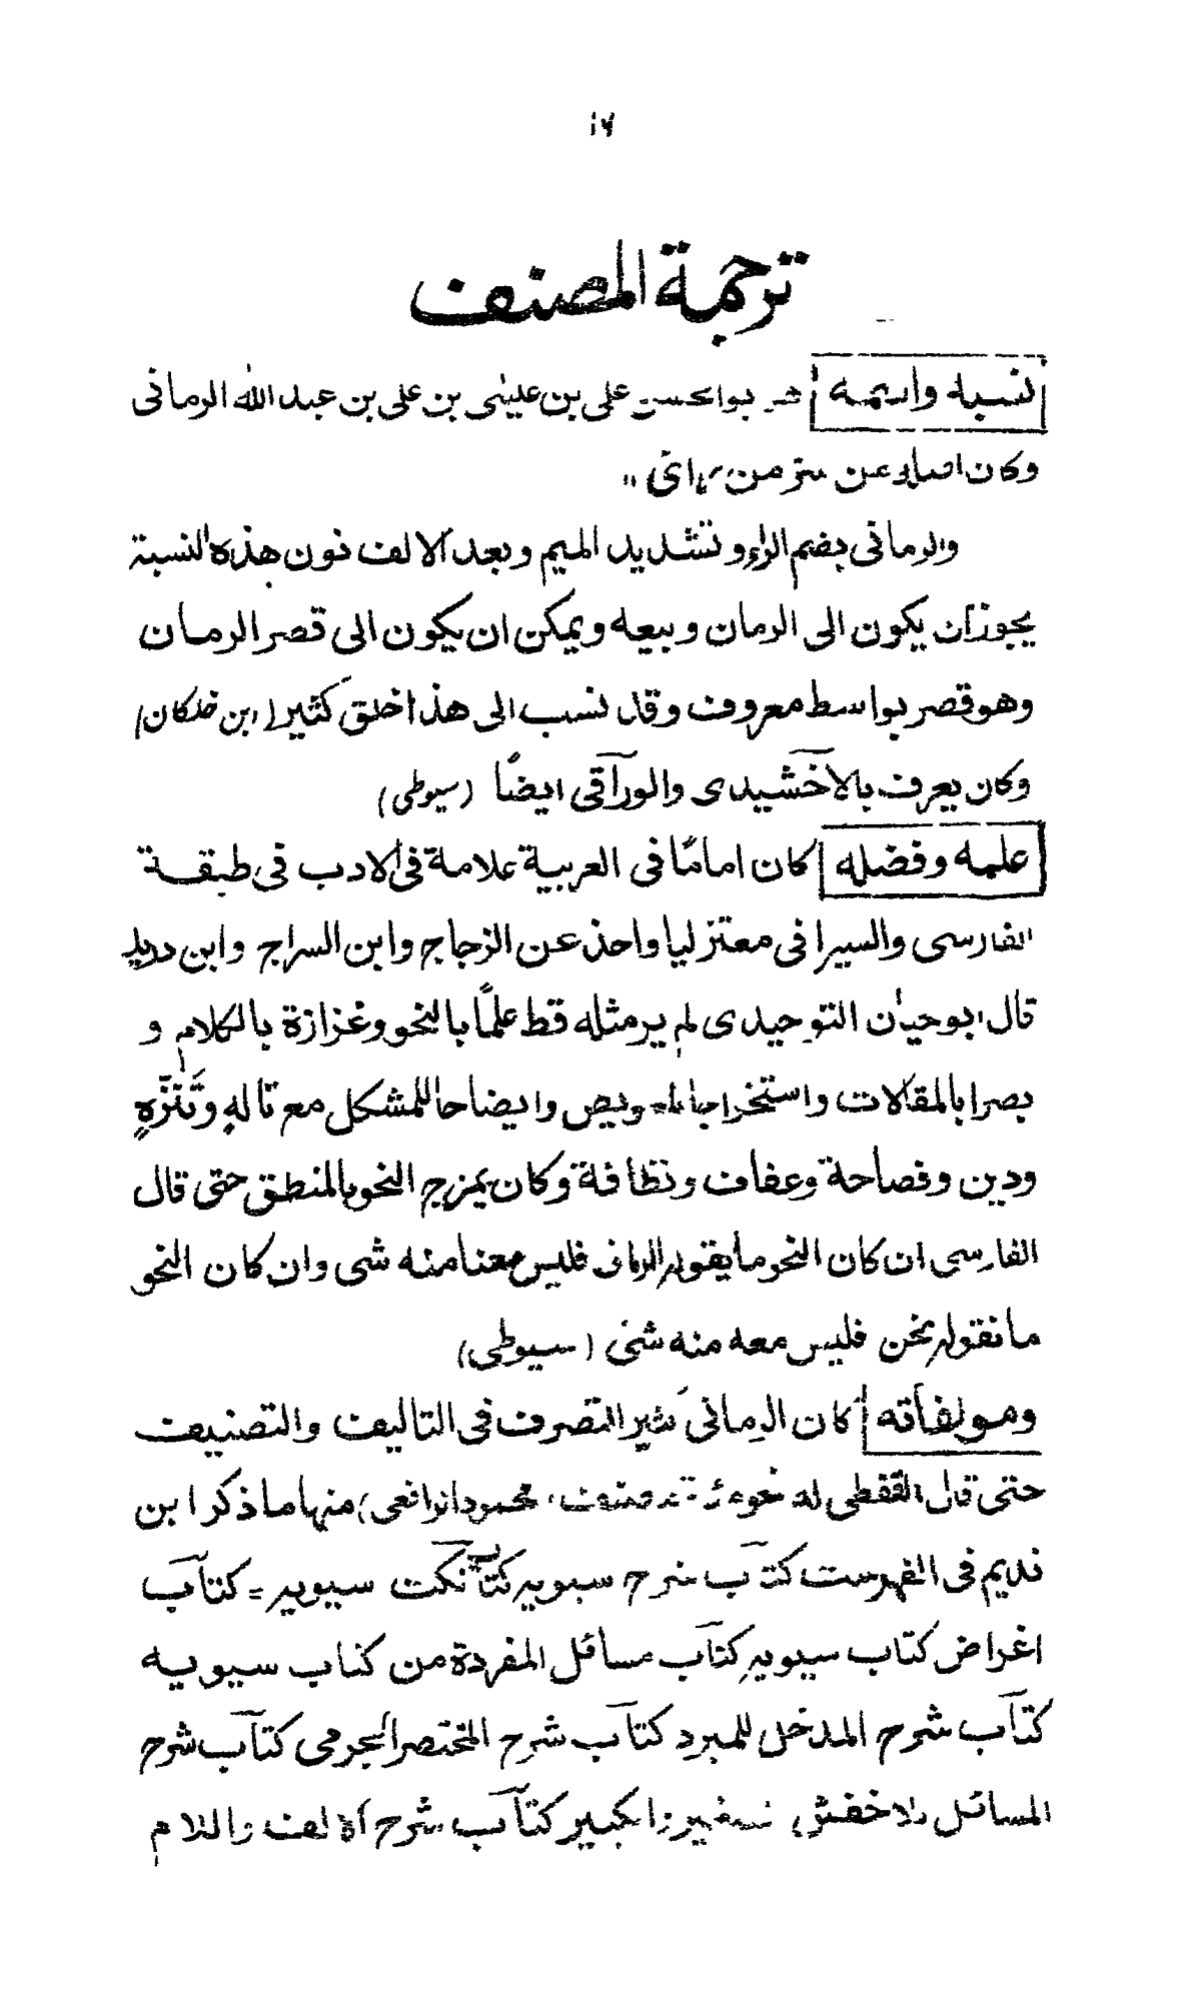 ١٧
ترجمة المصنف
نسبه واسمه هو ابوالحسن علی بن عیسٰی بن علی بن عبداللہ الرمانی
وکان اصله من سر من رای "
والرمانی بضم الراء وتشدید المیم وبعد الالف نون هذه النسبة
یجوزان یکون الی الرمان وبیعه ویمکن ان یکون الی قصر الرمان
وهو قصر بواسط معروف وقد نسب الی هذا خلق کثیر (ابن خلکان)
وکان یعرف بالآخشیدی والورآقی ایضًا (سیوطی)
علمه وفضله کان امامًا فی العربیة علامة فی الادب فی طبقة
الفارسی والسیرافی معتزلیا واخذ عن الزجاج وابن السراج وابن درید
قال ابوحیان التوحیدی لم یر مثله قط علمًا بالنحو وغزارة بالکلام و
بصرا بالمقالات واستخراجا للعویص وایضاحا للمشکل مع تاله وتَنَزّهٍ
ودین وفصاحة وعفاف ونظافة وکان یمزج النحو بالمنطق حتی قال
الفارسی ان کان النحو ما یقوله الرمانی فلیس معنا منه شی وان کان النحو
ما نقوله نحن فلیس معه منه شئ (سیوطی)
ومولفاته کان الرمانی کثیر التصرف فی التالیف والتصنیف
حتی قال القفطی له نحو مصنف محمود الرافعی) منها ما ذکر ابن
ندیم فی الفهرست کتآب شرح سیبویه کتآب نکت سیبویه = کتآب
اغراض کتاب سیبویه کتآب مسائل المفردة من کتاب سیبویه
کتآب شرح المدخل للمبرد کتآب شرح المختصر الجرمی کتآب شرح
المسائل للاخفش الصغیر والکبیر کتآب شرح الالف واللام